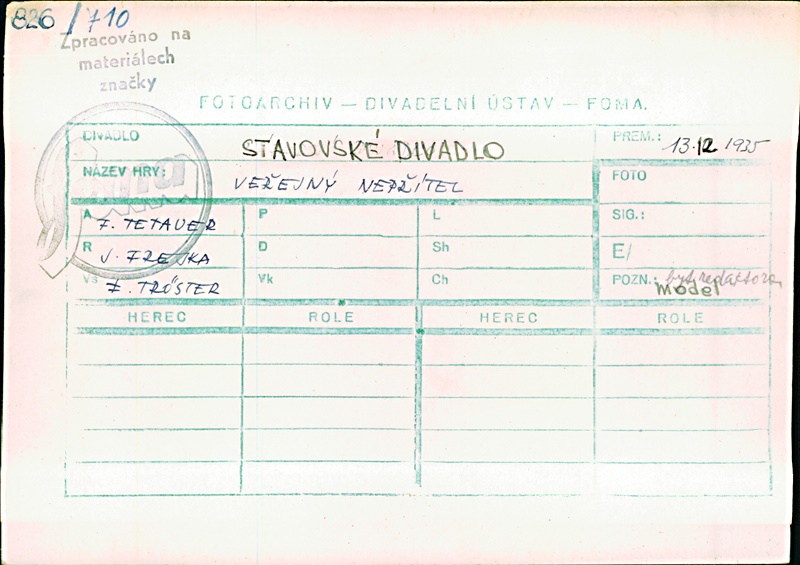 826/710
Zpracováno na
materiálech
značky
FOTOARCHIV — DIVADELNÍ ÚSTAV — FOMA.
DIVADLO STAVOVSKÉ DIVADLO PREM.: 13.12 1935
NÁZEV HRY: VEŘEJNÝ NEPŘÍTEL FOTO
A F. TETAUER P L SIG.:
R J. FREJKA D Sh E/
Vs F. TRÖSTER Vk Ch POZN.: byt redaktora
model
HEREC ROLE HEREC ROLE